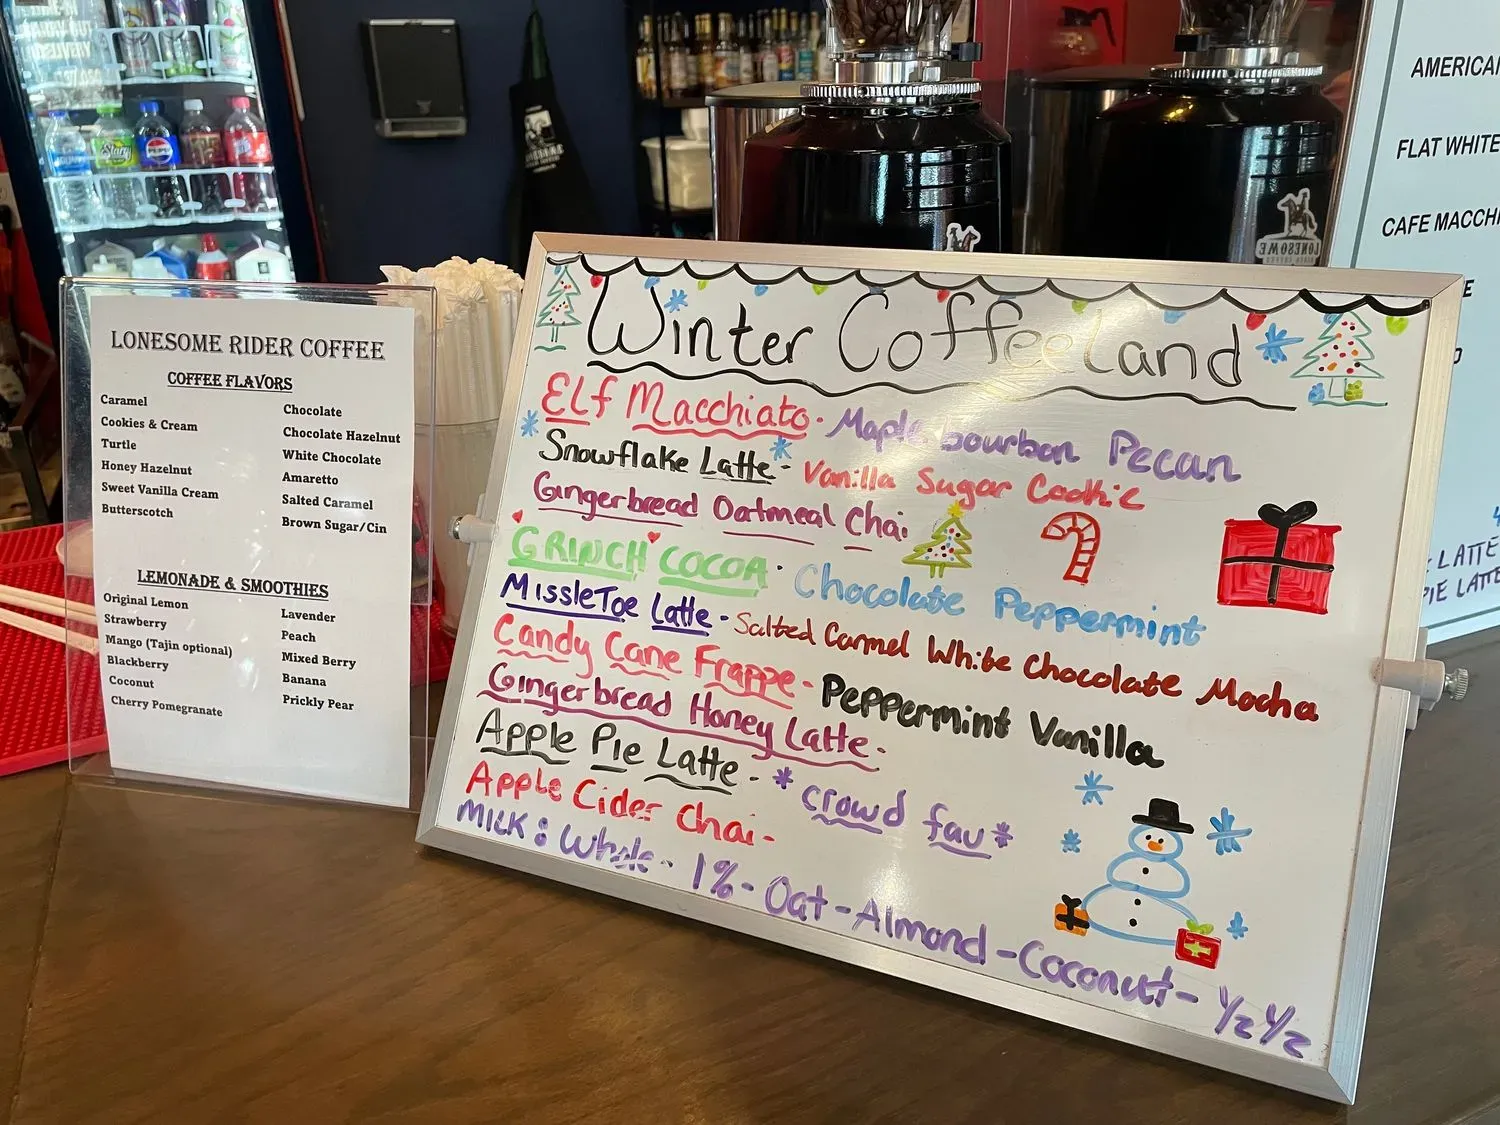 LONESOME RIDER COFFEE
COFFEE FLAVORS
Caramel
Cookies & Cream
Turtle
Honey Hazelnut
Sweet Vanilla Cream
Butterscotch
Chocolate
Chocolate Hazelnut
White Chocolate
Amaretto
Salted Caramel
Brown Sugar/Cin
LEMONADE & SMOOTHIES
Original Lemon
Strawberry
Mango (Tajin optional)
Blackberry
Coconut
Cherry Pomegranate
Lavender
Peach
Mixed Berry
Banana
Prickly Pear
Winter Coffeeland
Elf Macchiato - Maple bourbon Pecan
Snowflake Latte - Vanilla Sugar Cookie
Gingerbread Oatmeal Chai
GRINCH COCOA - Chocolate Peppermint
MissleToe Latte - Salted Carmel White Chocolate Mocha
Candy Cane Frappe - Peppermint Vanilla
Gingerbread Honey Latte -
Apple Pie Latte - *crowd fav*
Apple Cider Chai -
MILK: Whole - 1% - Oat - Almond - Coconut - 1/2 1/2
FLAT WHITE
LATTE
PEPSI
Starry
LONESOME